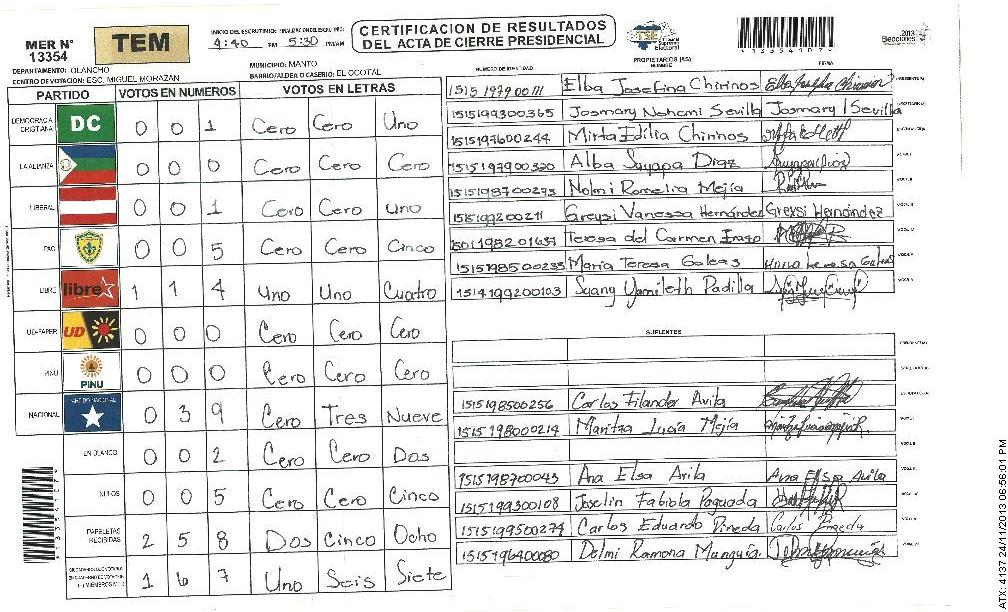 MER N° 13354
TEM
INICIO DEL ESCRUTINIO: FINALIZACION DEL ESCRUTINIO:
4:40 PM 5:30 PM/AM
CERTIFICACION DE RESULTADOS
DEL ACTA DE CIERRE PRESIDENCIAL
TSE Tribunal Supremo Electoral
1335410?
Elecciones 2013
DEPARTAMENTO: OLANCHO
MUNICIPIO: MANTO
CENTRO DE VOTACIÓN: ESC. MIGUEL MORAZAN
BARRIO/ALDEA O CASERIO: EL OCOTAL
PARTIDO VOTOS EN NUMEROS VOTOS EN LETRAS
DEMOCRACIA CRISTIANA DC 0 0 1 Cero Cero Uno
LA ALIANZA 0 0 0 Cero Cero Cero
LIBERAL 0 0 1 Cero Cero Uno
PAC 0 0 5 Cero Cero Cinco
LIBRE libre 1 1 4 Uno Uno Cuatro
UD-FAPER UD 0 0 0 Cero Cero Cero
PINU PINU 0 0 0 Cero Cero Cero
NACIONAL PARTIDO NACIONAL 0 3 9 Cero Tres Nueve
EN BLANCO 0 0 2 Cero Cero Dos
NULOS 0 0 5 Cero Cero Cinco
PAPELETAS RECIBIDAS 2 5 8 Dos Cinco Ocho
1 6 7 Uno Seis Siete
PROPIETARIOS (AS)
NUMERO DE IDENTIDAD NOMBRE FIRMA
1515 1979 00111 Elba Josefina Chirinos
1515199300365 Josmary Nohemi Sevilla Josmary Sevilla
1515197600244 Mirta Edilia Chirinos
1515197900320 Alba Suyapa Diaz
1515198700273 Nolmi Romelia Mejía
1515199200211 Greysi Vanessa Hernández Greysi Hernández
1501198201637 Teresa del Carmen Erazo
1515198500233 Maria Teresa Galeas
1514199200103 Suany Yamileth Padilla
SUPLENTES
1515198500256 Carlos Filander Avila
1515198000214 Maritza Lucía Mejía
1515198700043 Ana Elsa Avila Ana Elsa Avila
1515199300108 Joselin Fabiola Poguada
1515199500274 Carlos Eduardo Pineda Carlos Pineda
1515196400080 Delmi Ramona Munguía.
ATX: 4137 24/11/2013 06:56:01 PM